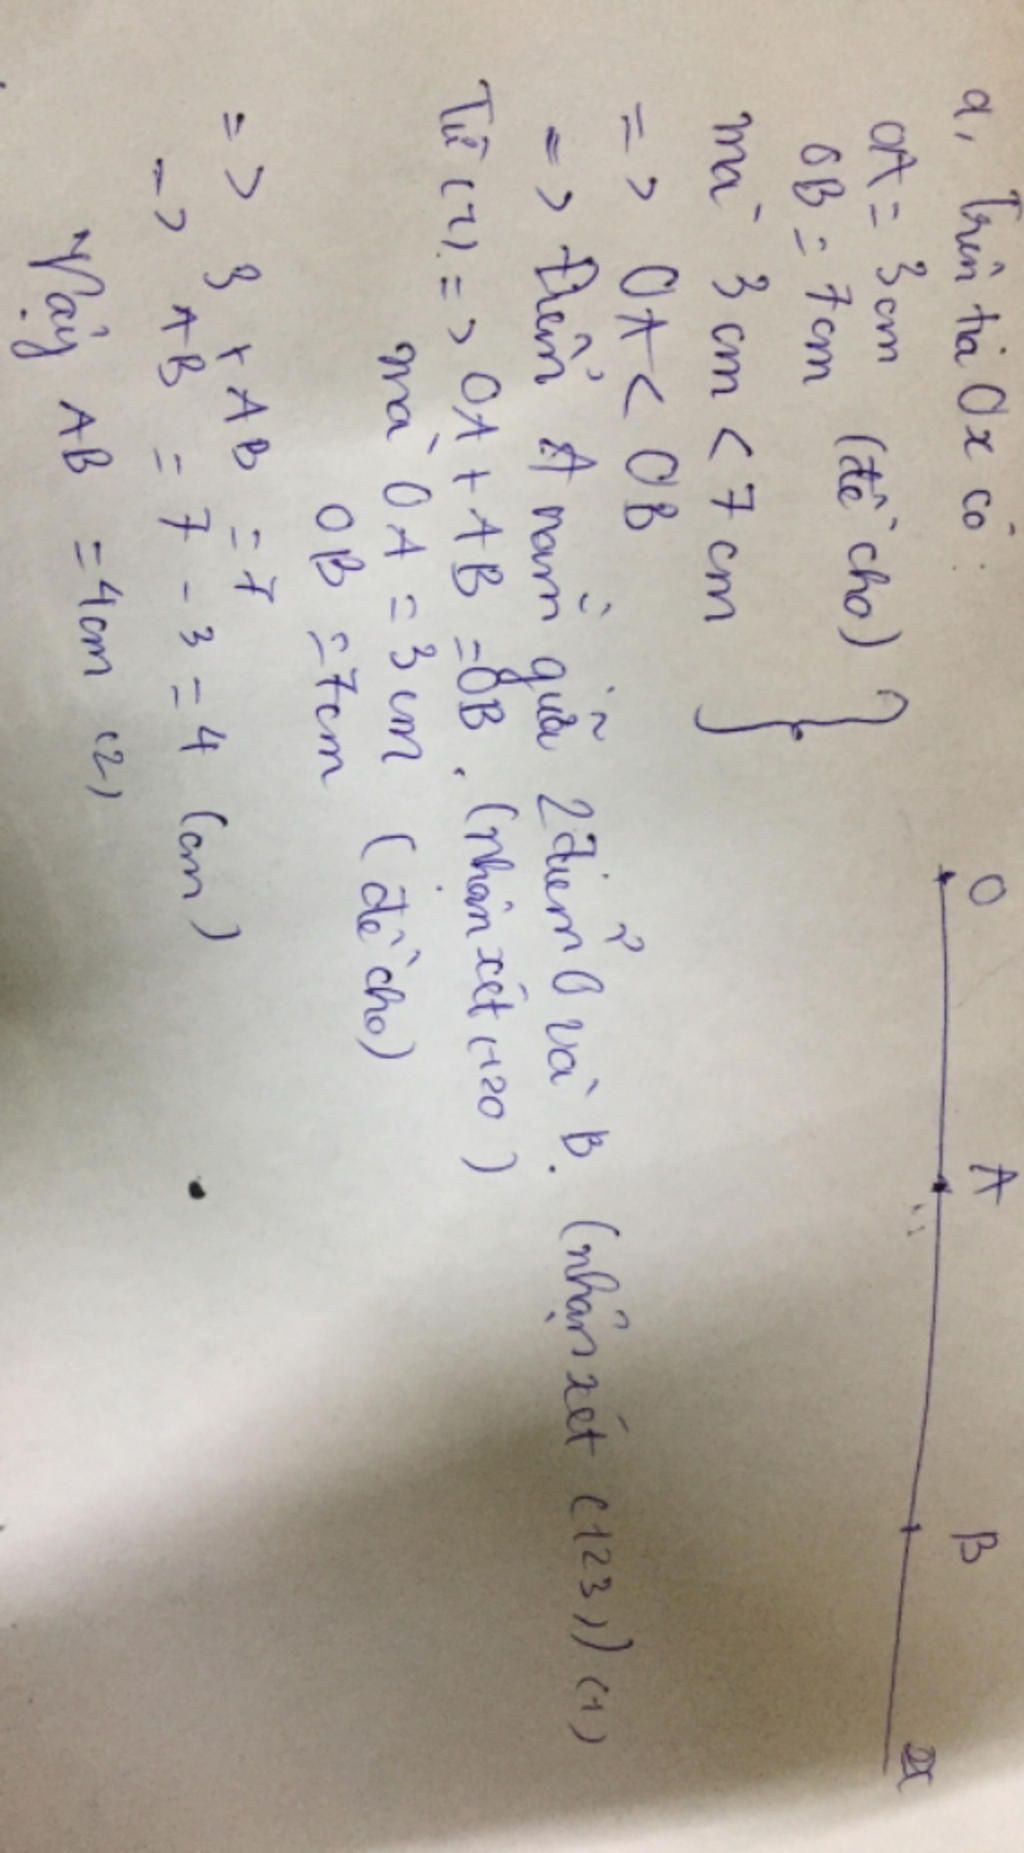 O A B x
a, Trên tia Ox có:
OA = 3cm
OB = 7cm (đề cho)
mà 3cm < 7cm }
=> OA < OB
=> Điểm A nằm giữa 2 điểm O và B. (nhận xét (123)) (1)
Từ (1) => OA + AB = OB. (nhận xét (120)
mà OA = 3cm (đề cho)
OB = 7cm
=> 3 + AB = 7
=> AB = 7 - 3 = 4 (cm)
Vậy AB = 4cm (2)